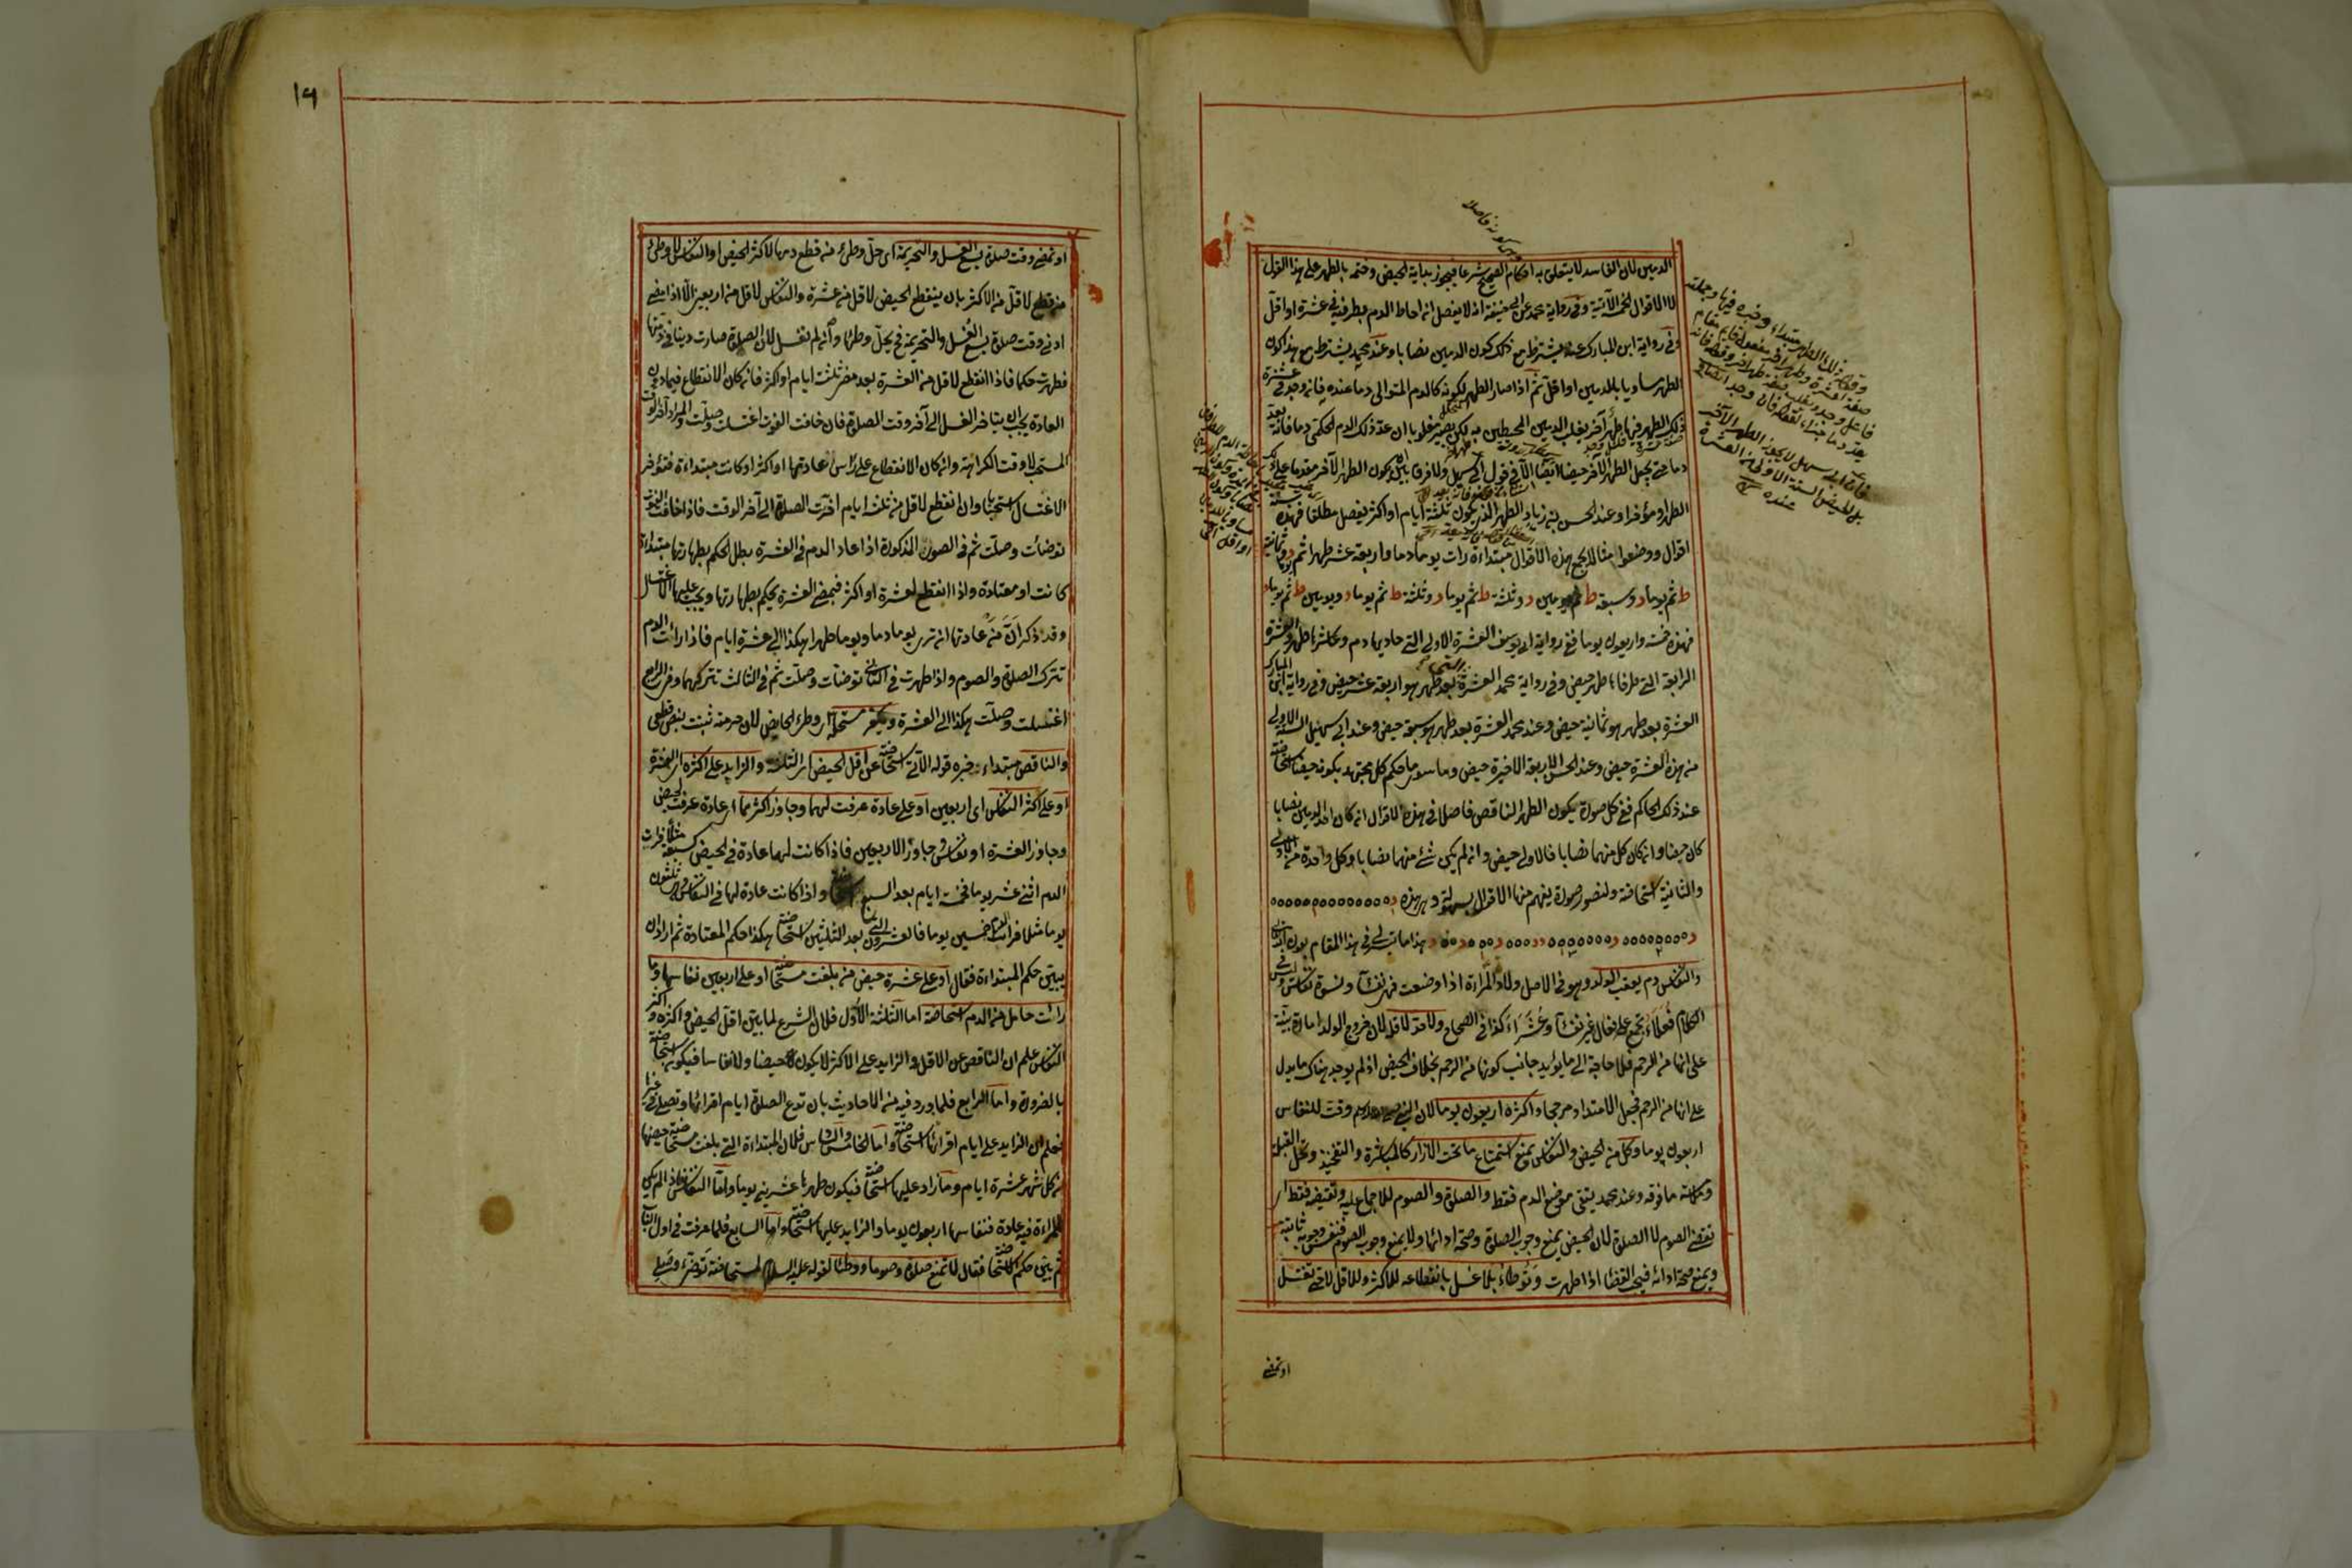 الدمين لان الفاسد لا يتعلق به احكام الصحيح شرعا فيجوز بداية الحيض وختمه بالطهر على هذا القول
لا الاقوال الخمسة الآتية وفى رواية محمد عن ابى حنيفة انه لا يفصل ان احاط الدم بطرفيه فى عشرة او اقل
وفى رواية ابن المبارك عنه يشترط مع ذلك كون الدمين نصابا وعند محمد يشترط مع هذا كون
الطهر مساويا بالدمين او اقل ثم اذا صار الطهر لكونه كالدم المتوالى دما عنده فان وجد فى عشرة
ذلك الطهر فيها طهر آخر يغلب الدمين المحيطين به لكن يصير مغلوبا ان عد ذلك الدم الحكمى دما فانه يعد
دما حتى يجعل الطهر الآخر حيضا ايضا الا فى قول ابى سهيل ولا فرق بين ان يكون الطهر الآخر مقدما على ذلك
الطهر او مؤخرا وعند الحسن بن زياد الطهر الذى يكون ثلثة ايام او اكثر يفصل مطلقا فهذه ستة
اقوال ووضعوا مثالا يجمع هذه الاقوال مبتداءة رات يوما دما واربعة عشر طهرا ثم يوما د وثمانية
ط ثم يوما د وسبعة ط ثم يومين د وثلثة ط ثم يوما د وثلثة ط ثم يوما د ويومين ط ثم يوما د
فهذه خمسة واربعون يوما ففى رواية ابى يوسف العشرة الاولى التى حاديها دم وعاشرها طهر والعشرة
الرابعة التى طرفاها طهر حيض وفى رواية محمد العشرة بعد طهر هو اربعة عشر حيض وفى رواية ابن المبارك
العشرة بعد طهر هو ثمانية حيض وعند محمد العشرة بعد طهر هو سبعة حيض وعند ابى سهيل الستة الاولى
من هذه العشرة حيض وعند الحسن الاربعة الاخيرة حيض وما سوى ما حكم كل مجتهد بكونه حيضا استحاضة
عند ذلك الحاكم ففى كل صورة يكون الطهر الناقص فاصلا فى هذه الاقوال ان كان احد الدمين نصابا
كان حيضا وان كان كل منهما نصابا فالاولى حيض وان لم يكن شئ منهما نصابا وكل واحدة من الاولى
والثانية استحاضة ولنصور صورة يفهم منها الاقوال بسهولة وهى هذه
هذا ما تيسر لى فى هذا المقام بعون
والنفاس دم يعقب الولد وهو فى الاصل ولادة المراءة اذا وضعت فهى نفساء ونسوة نفاس وليس فى
الكلام فعلاء يجمع على فعال غير نفساء وعشراء كذا فى الصحاح ولا حد لاقله لان خروج الولد امارة بينة
على انها من الرحم فلا حاجة الى ما يؤيد جانب كونها من الرحم بخلاف الحيض اذ لم يوجد هناك ما يدل
على انها من الرحم فجعل الامتداد مرجحا واكثره اربعون يوما لان النبى وقت للنفاس
اربعون يوما وكل من الحيض والنفاس يمنع استمتاع ما تحت الازار كالمباشرة والتفخيذ وتحل القبلة
وملامسة ما فوقه وعند محمد يتقى موضع الدم فقط والصلوة والصوم للاجماع عليه وتقضيه فقط اى
تقضى الصوم لا الصلوة لان الحيض يمنع وجوب الصلوة وصحة ادائها ولا يمنع وجوب الصوم فنفس وجوبه ثابتة
ويمنع صحة ادائه فيجب القضاء اذا طهرت وتوطأ بلا غسل بانقطاعه للاكثر وللاقل لا حتى تغتسل
او تمضى
١٦
او تمضى وقت صلوة يسع الغسل والتحريمة اى حل وطئ من قطع دمها لاكثر الحيض او النفاس لا وطئ
من قطع لاقل من الاكثر بان ينقطع الحيض لاقل من عشرة والنفاس لاقل من اربعين الا اذا مضى
ادنى وقت صلوة يسع الغسل والتحريمة فح يحل وطئها وان لم تغتسل لان الصلوة صارت دينا فى ذمتها
فطهرت حكما فاذا انقطع لاقل من العشرة بعد مضى ثلثة ايام او اكثر فان كان الانقطاع فيما دون
العادة يجب ان يتاخر الغسل الى آخر وقت الصلوة فان خافت الفوت اغتسلت وصلت والمراد آخر الوقت
المستحب لا وقت الكراهة وان كان الانقطاع على راس عادتها او اكثر او كانت مبتداءة فتؤخر
الاغتسال استحبابا وان انقطع لاقل من ثلثة ايام اخرت الصلوة الى آخر الوقت فاذا خافت الفوت
توضات وصلت ثم فى الصور المذكورة اذا عاد الدم فى العشرة بطل الحكم بطهارتها مبتداءة
كانت او معتادة واذا انقطع لعشرة او اكثر فبمضى العشرة يحكم بطهارتها ويجب عليها الاغتسال
وقد ذكر ان من عادتها ان ترى يوما دما ويوما طهرا هكذا الى عشرة ايام فاذا رات الدم
تترك الصلوة والصوم واذا طهرت فى الثانى توضات وصلت ثم فى الثالث تتركهما وفى الرابع
اغتسلت وصلت هكذا الى العشرة ويكفر مستحله اى وطء الحايض لان حرمته ثبتت بنص قطعى
والناقص مبتداء خبره قوله الآتى استحاضة عن اقل الحيض اى الثلثة والزايد على اكثره اى العشرة
او على اكثر النفاس اى اربعين او على عادة عرفت لهما وجاوز اكثرهما اى عادة عرفت لحيض
وجاوز العشرة او نفاس وجاوز الاربعين فاذا كانت لها عادة فى الحيض كسبعة مثلا فرات
الدم اثنى عشر يوما فخمسة ايام بعد السبع استحاضة واذا كانت عادة لها فى النفاس وهى ثلثون
يوما مثلا فرات الدم خمسين يوما فالعشرون التى بعد الثلثين استحاضة هكذا حكم المعتادة ثم اراد ان
يبين حكم المبتداءة فقال او على عشرة حيض من بلغت مستحاضة او على اربعين نفاسها وما
رات حامل من الدم استحاضة اما الثلثة الاول فلان الشرع لما بين اقل الحيض واكثره واكثر
النفاس علم ان الناقص عن الاقل والزايد على الاكثر لا يكون حيضا ولا نفاسا فيكون استحاضة
بالضرورة واما الرابع فلما ورد فيه من الاحاديث بان تدع الصلوة ايام اقرائها وتصلى فى غيرها
فعلم ان الزايد على ايام اقرائها استحاضة واما الخامس والسادس فلان المبتداءة التى بلغت مستحاضة حيضها
من كل شهر عشرة ايام وما زاد عليها استحاضة فيكون طهرها عشرين يوما واما النفاس فاذا لم يكن
للمراءة فيه عادة فنفاسها اربعون يوما والزايد عليها استحاضة واما السابع فلما عرفت فى اول الباب
ثم بين حكم الاستحاضة فقال لا تمنع صلوة وصوما ووطئا لقوله عليه السلام لمستحاضة توضئ وصلى